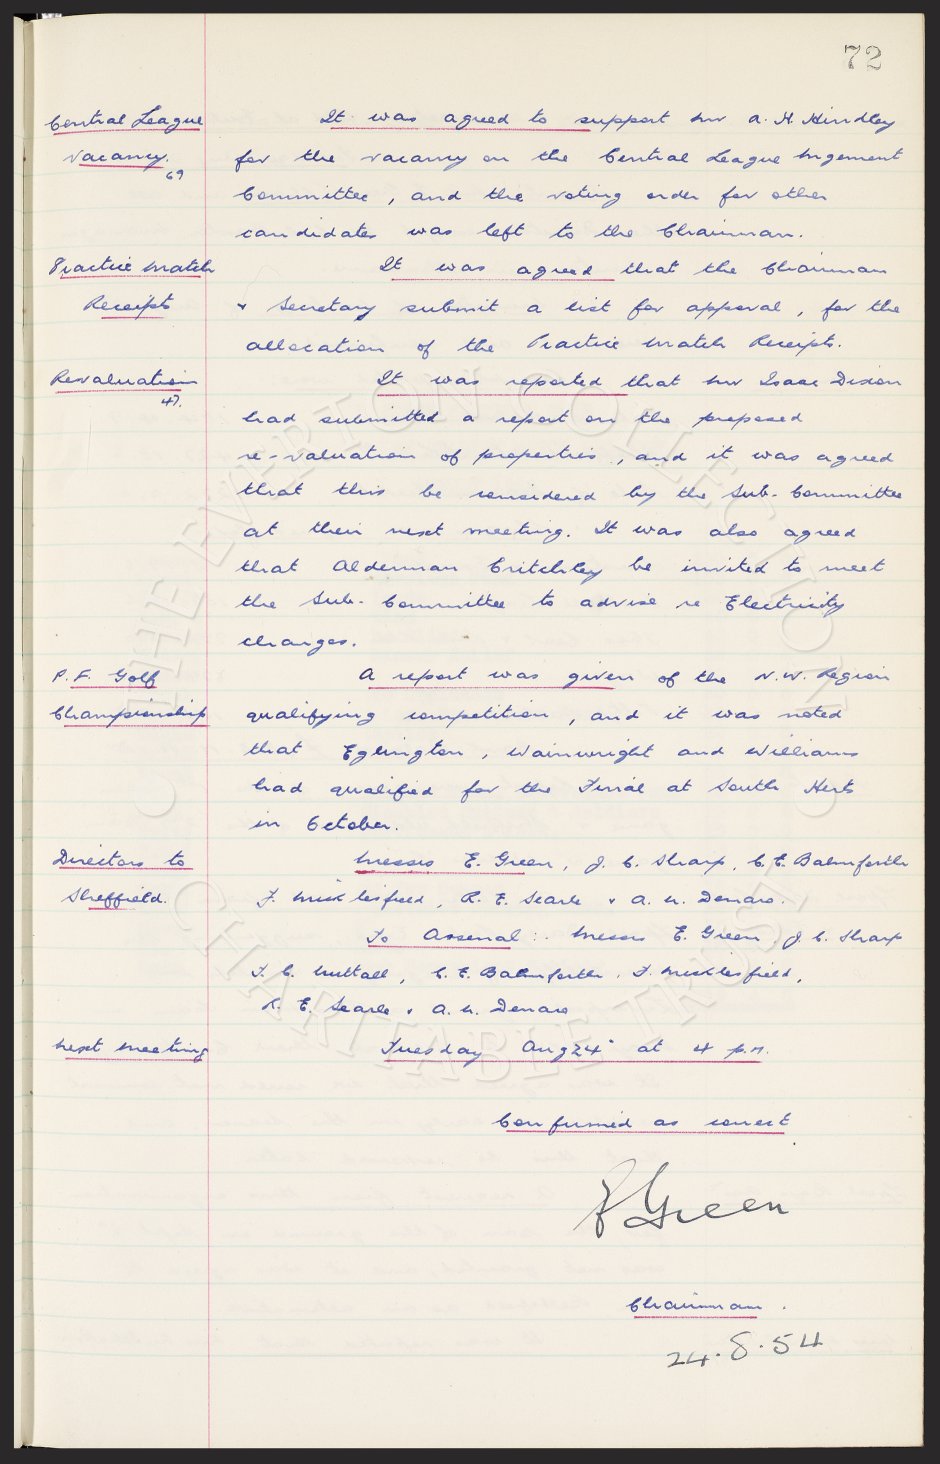 72
Central League It was agreed to support Mr A. H. Hindley
Vacancy. for the vacancy on the Central League Mgement
69
Committee, and the voting order for other
candidates was left to the Chairman.
Practice Match It was agreed that the Chairman
Receipts & Secretary submit a list for approval, for the
allocation of the Practice Match Receipts.
Revaluation It was reported that Mr Isaac Dixon
47.
had submitted a report on the proposed
re-valuation of properties, and it was agreed
that this be considered by the Sub-Committee
at their next meeting. It was also agreed
that Alderman Critchley be invited to meet
the Sub-Committee to advise re Electricity
charges.
P. F. Golf A report was given of the N.W. Region
Championship qualifying competition, and it was noted
that Eglington, Wainwright and Williams
had qualified for the Final at South Herts
in October.
Directors to Messrs E. Green, J. C. Sharp, C. E. Balmforth
Sheffield. F. Micklesfield, R. E. Searle & A. W. Denaro.
To Arsenal :- Messrs E. Green, J. C. Sharp
T. C. Nuttall, C. E. Balmforth, F. Micklesfield,
R. E. Searle & A. W. Denaro
Next Meeting Tuesday Aug 24 at 4 p.m.
Confirmed as correct
E Green
Chairman.
24.8.54
THE EVERTON COLLECTION
CHARITABLE TRUST